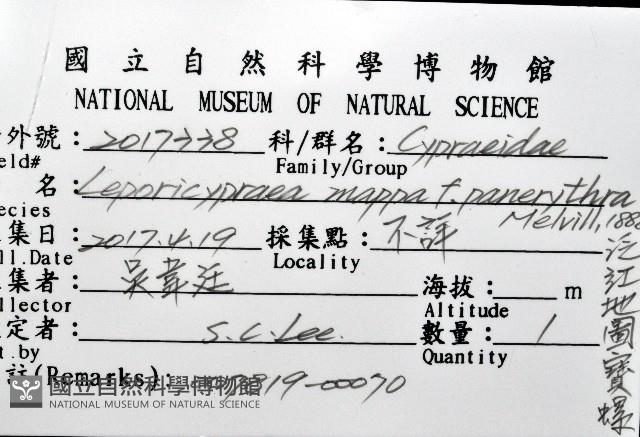 國立自然科學博物館
NATIONAL MUSEUM OF NATURAL SCIENCE
外號：2017338 科/群名：Cypraeidae
eld# Family/Group
名：Leporicypraea mappa f. panerythra
ecies Melvill, 1888
集日：2017.4.19 採集點：不詳
ll.Date Locality
集者：吳韋廷 海拔： m
llector Altitude
定者：S.C.Lee. 數量：1
t.by Quantity
註(Remarks): 819-00070
泛紅地圖寶螺
國立自然科學博物館
NATIONAL MUSEUM OF NATURAL SCIENCE